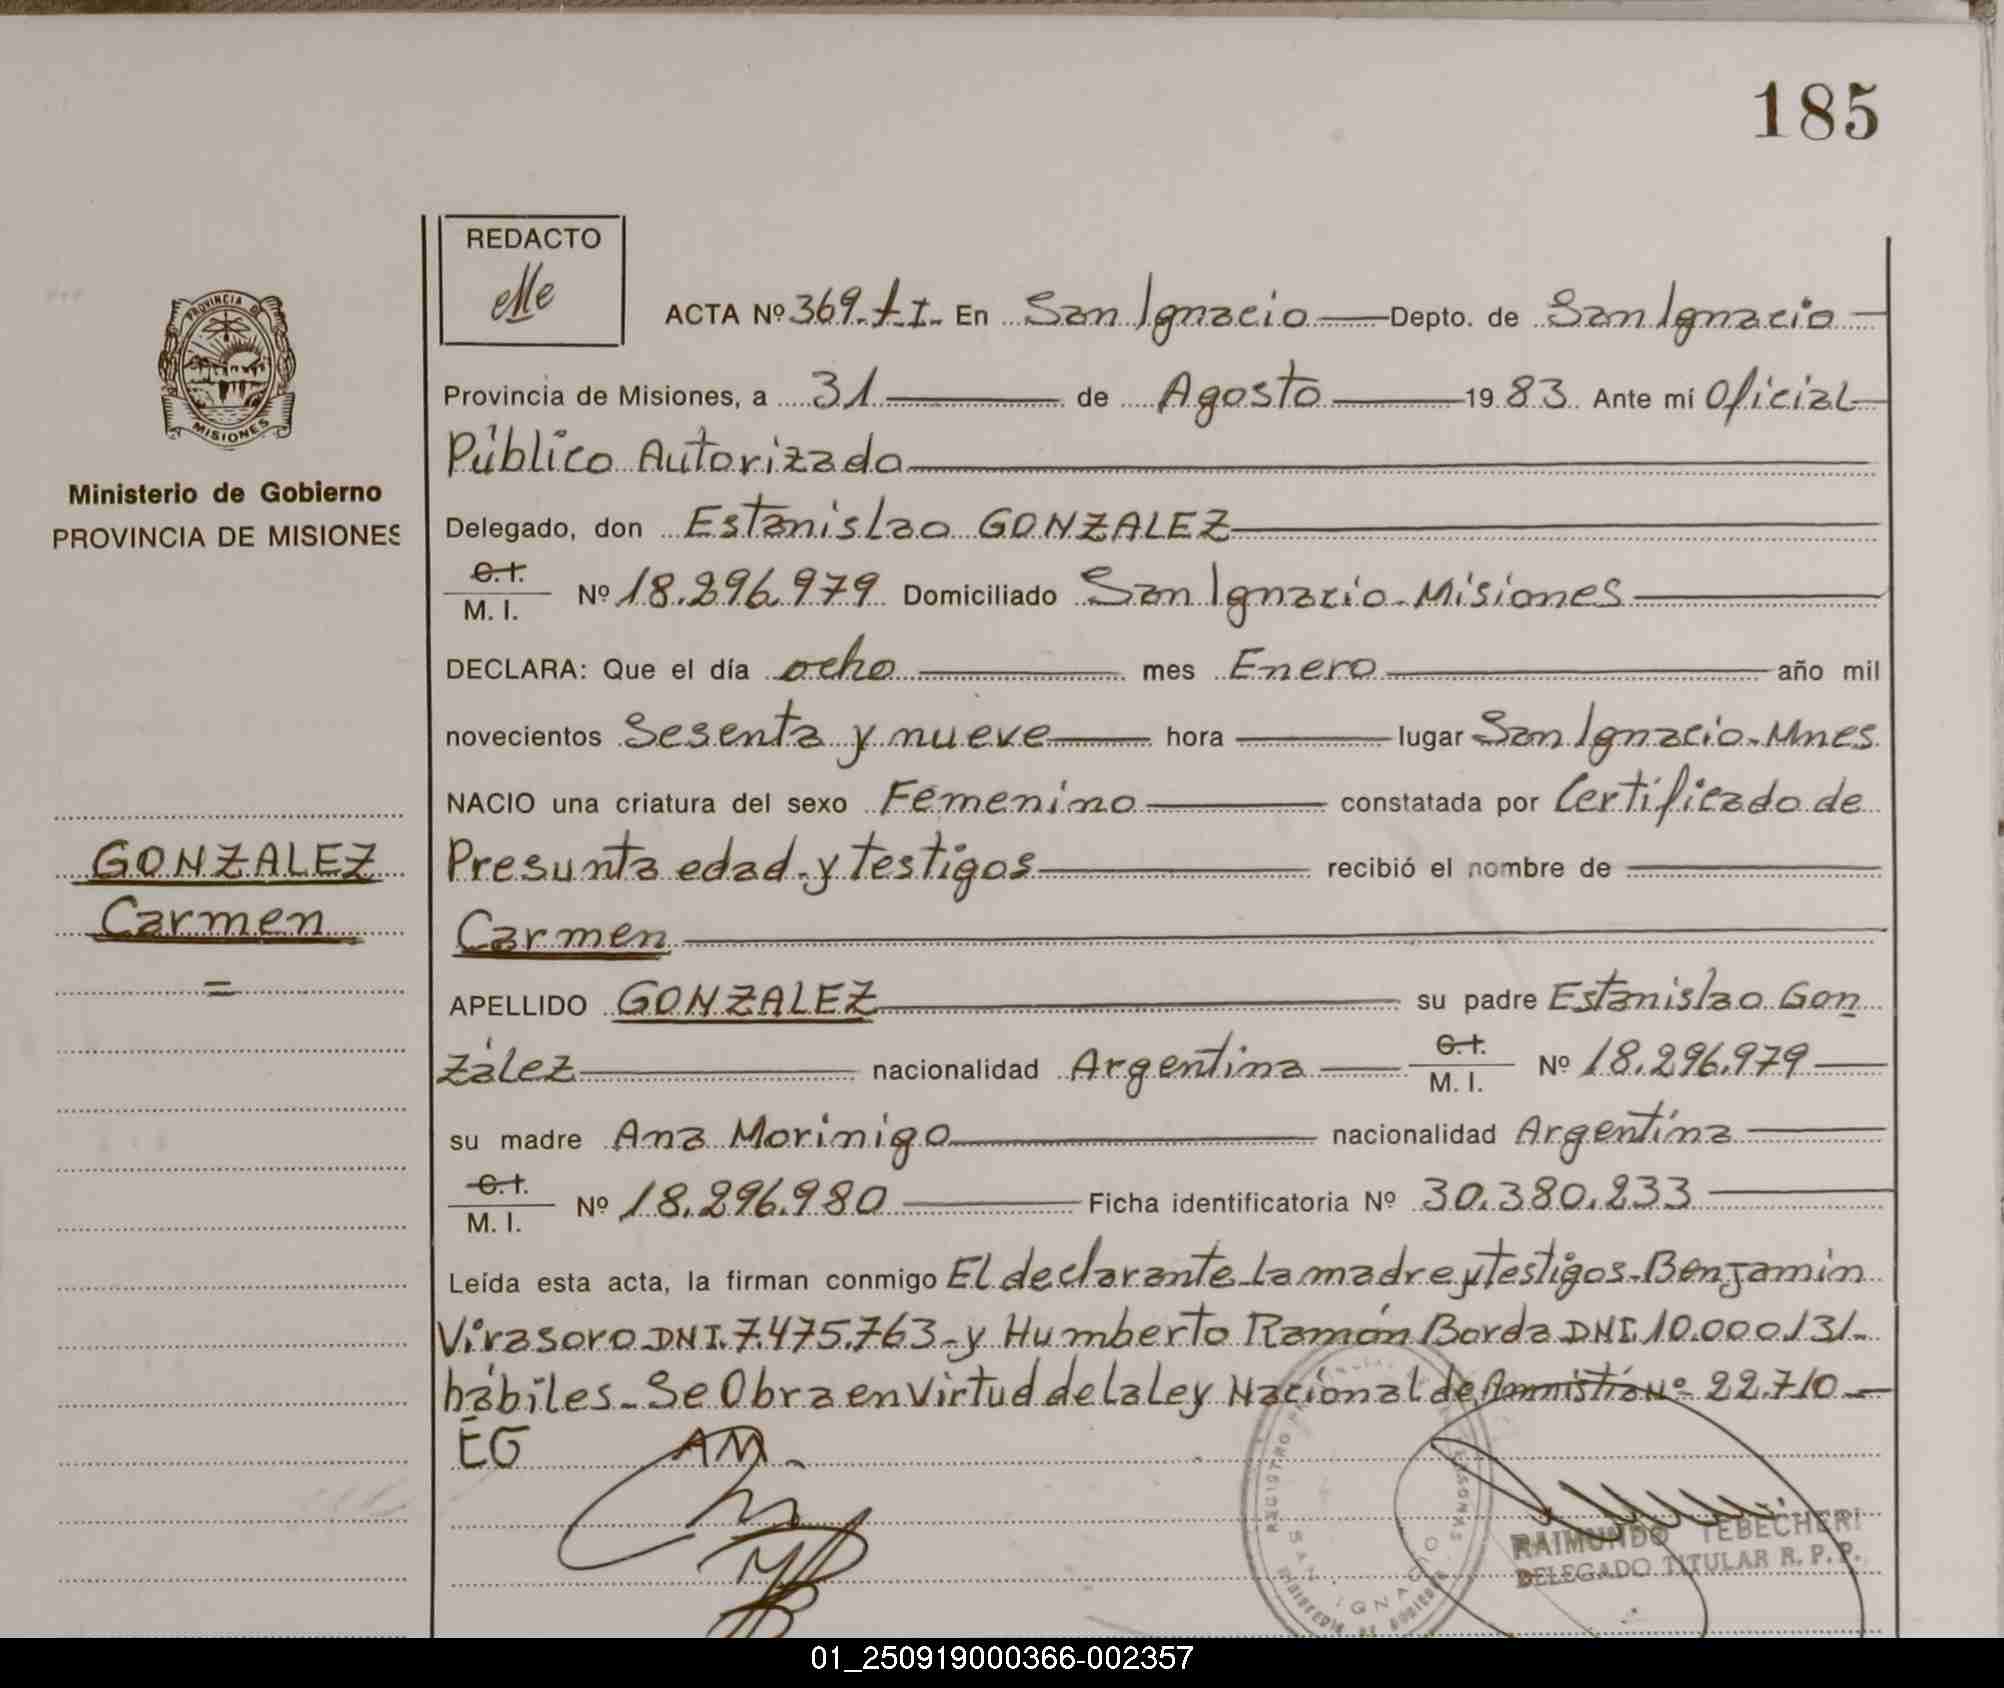 185
REDACTO
elle
PROVINCIA DE
MISIONES
Ministerio de Gobierno
PROVINCIA DE MISIONES
ACTA Nº 369.-t-I.- En San Ignacio Depto. de San Ignacio
Provincia de Misiones, a 31 de Agosto 1983. Ante mí Oficial
Público Autorizado
Delegado, don Estanislao GONZALEZ
C.I. M. I. Nº 18.296.979 Domiciliado San Ignacio-Misiones
DECLARA: Que el día ocho mes Enero año mil
novecientos Sesenta y nueve hora lugar San Ignacio-Mnes.
NACIO una criatura del sexo Femenino constatada por Certificado de
Presunta edad-y testigos recibió el nombre de
Carmen
GONZALEZ
Carmen
=
APELLIDO GONZALEZ su padre Estanislao Gon
zález nacionalidad Argentina C.I. M. I. Nº 18.296.979
su madre Ana Morinigo nacionalidad Argentina
C.I. M. I. Nº 18.296.980 Ficha identificatoria Nº 30.380.233
Leída esta acta, la firman conmigo El declarante-la madre y testigos-Benjamin
Virasoro DNI.7.475.763-y Humberto Ramón Borda DNI.10.000.131-
hábiles-Se Obra en Virtud de la Ley Nacional de Amnistía Nº 22.710
EG AM.
REGISTRO PROVINCIAL DE LAS PERSONAS
SAN IGNACIO
MINISTERIO DE GOBIERNO
RAIMUNDO TEBECHERI
DELEGADO TITULAR R. P. P.
01_250919000366-002357